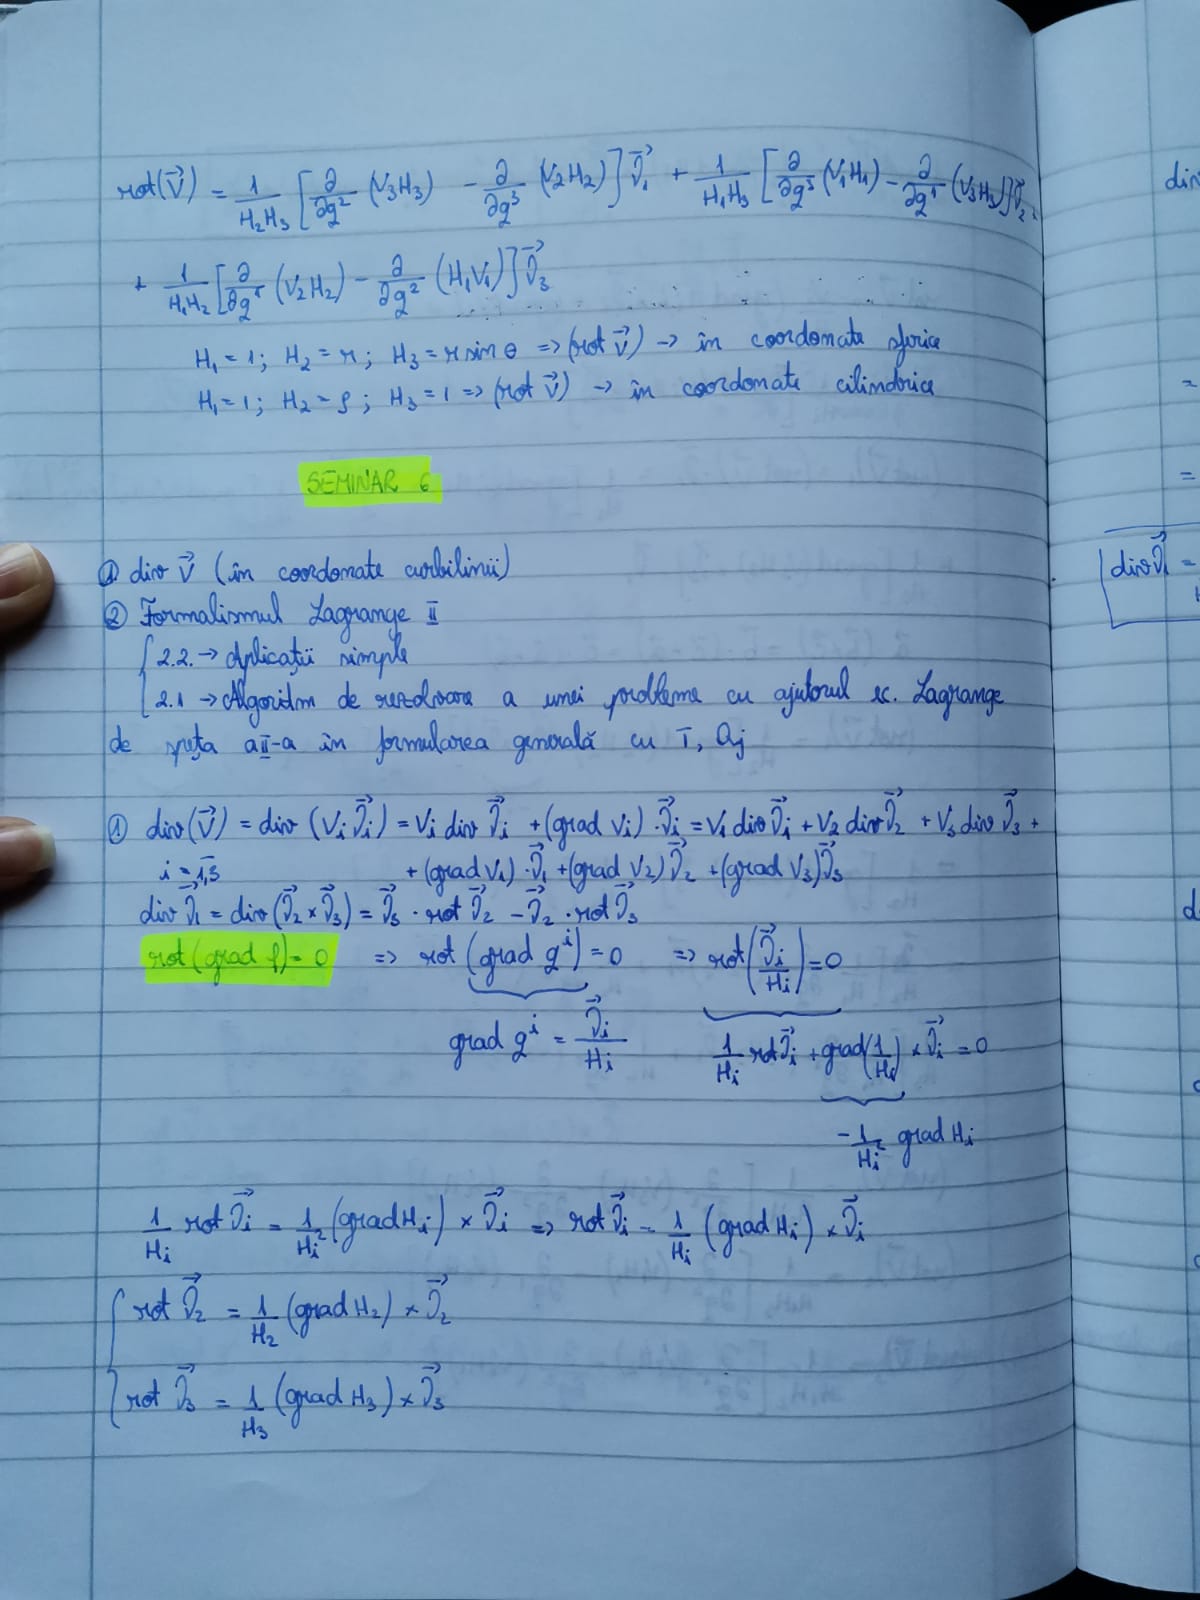 rot(V⃗) = 1/H₂H₃ [∂/∂q² (V₃H₃) - ∂/∂q³ (V₂H₂)] ν⃗₁ + 1/H₁H₃ [∂/∂q³ (V₁H₁) - ∂/∂q¹ (V₃H₃)] ν⃗₂
+ 1/H₁H₂ [∂/∂q¹ (V₂H₂) - ∂/∂q² (H₁V₁)] ν⃗₃
H₁ = 1; H₂ = r; H₃ = r sin θ => (rot V⃗) → în coordonate sferice
H₁ = 1; H₂ = ρ; H₃ = 1 => (rot V⃗) → în coordonate cilindrice
SEMINAR 6
① div V⃗ (în coordonate curbilinii)
② Formalismul Lagrange II
2.2. → Aplicații simple
2.1 → Algoritm de rezolvare a unei probleme cu ajutorul ec. Lagrange
de speța a II-a în formularea generală cu T, Qj
① div(V⃗) = div (Vi ν⃗i) = Vi div ν⃗i + (grad Vi) · ν⃗i = V₁ div ν⃗₁ + V₂ div ν⃗₂ + V₃ div ν⃗₃ +
i = 1,3 + (grad V₁) · ν⃗₁ + (grad V₂) ν⃗₂ + (grad V₃) ν⃗₃
div ν⃗₁ = div (ν⃗₂ × ν⃗₃) = ν⃗₃ · rot ν⃗₂ - ν⃗₂ · rot ν⃗₃
rot (grad f) = 0 => rot (grad qⁱ) = 0 => rot (ν⃗i/Hi) = 0
grad qⁱ = ν⃗i/Hi 1/Hi rot ν⃗i + grad(1/Hi) × ν⃗i = 0
- 1/Hi² grad Hi
1/Hi rot ν⃗i = 1/Hi² (grad Hi) × ν⃗i => rot ν⃗i = 1/Hi (grad Hi) × ν⃗i
rot ν⃗₂ = 1/H₂ (grad H₂) × ν⃗₂
rot ν⃗₃ = 1/H₃ (grad H₃) × ν⃗₃
div
=
=
div ν⃗₁ =